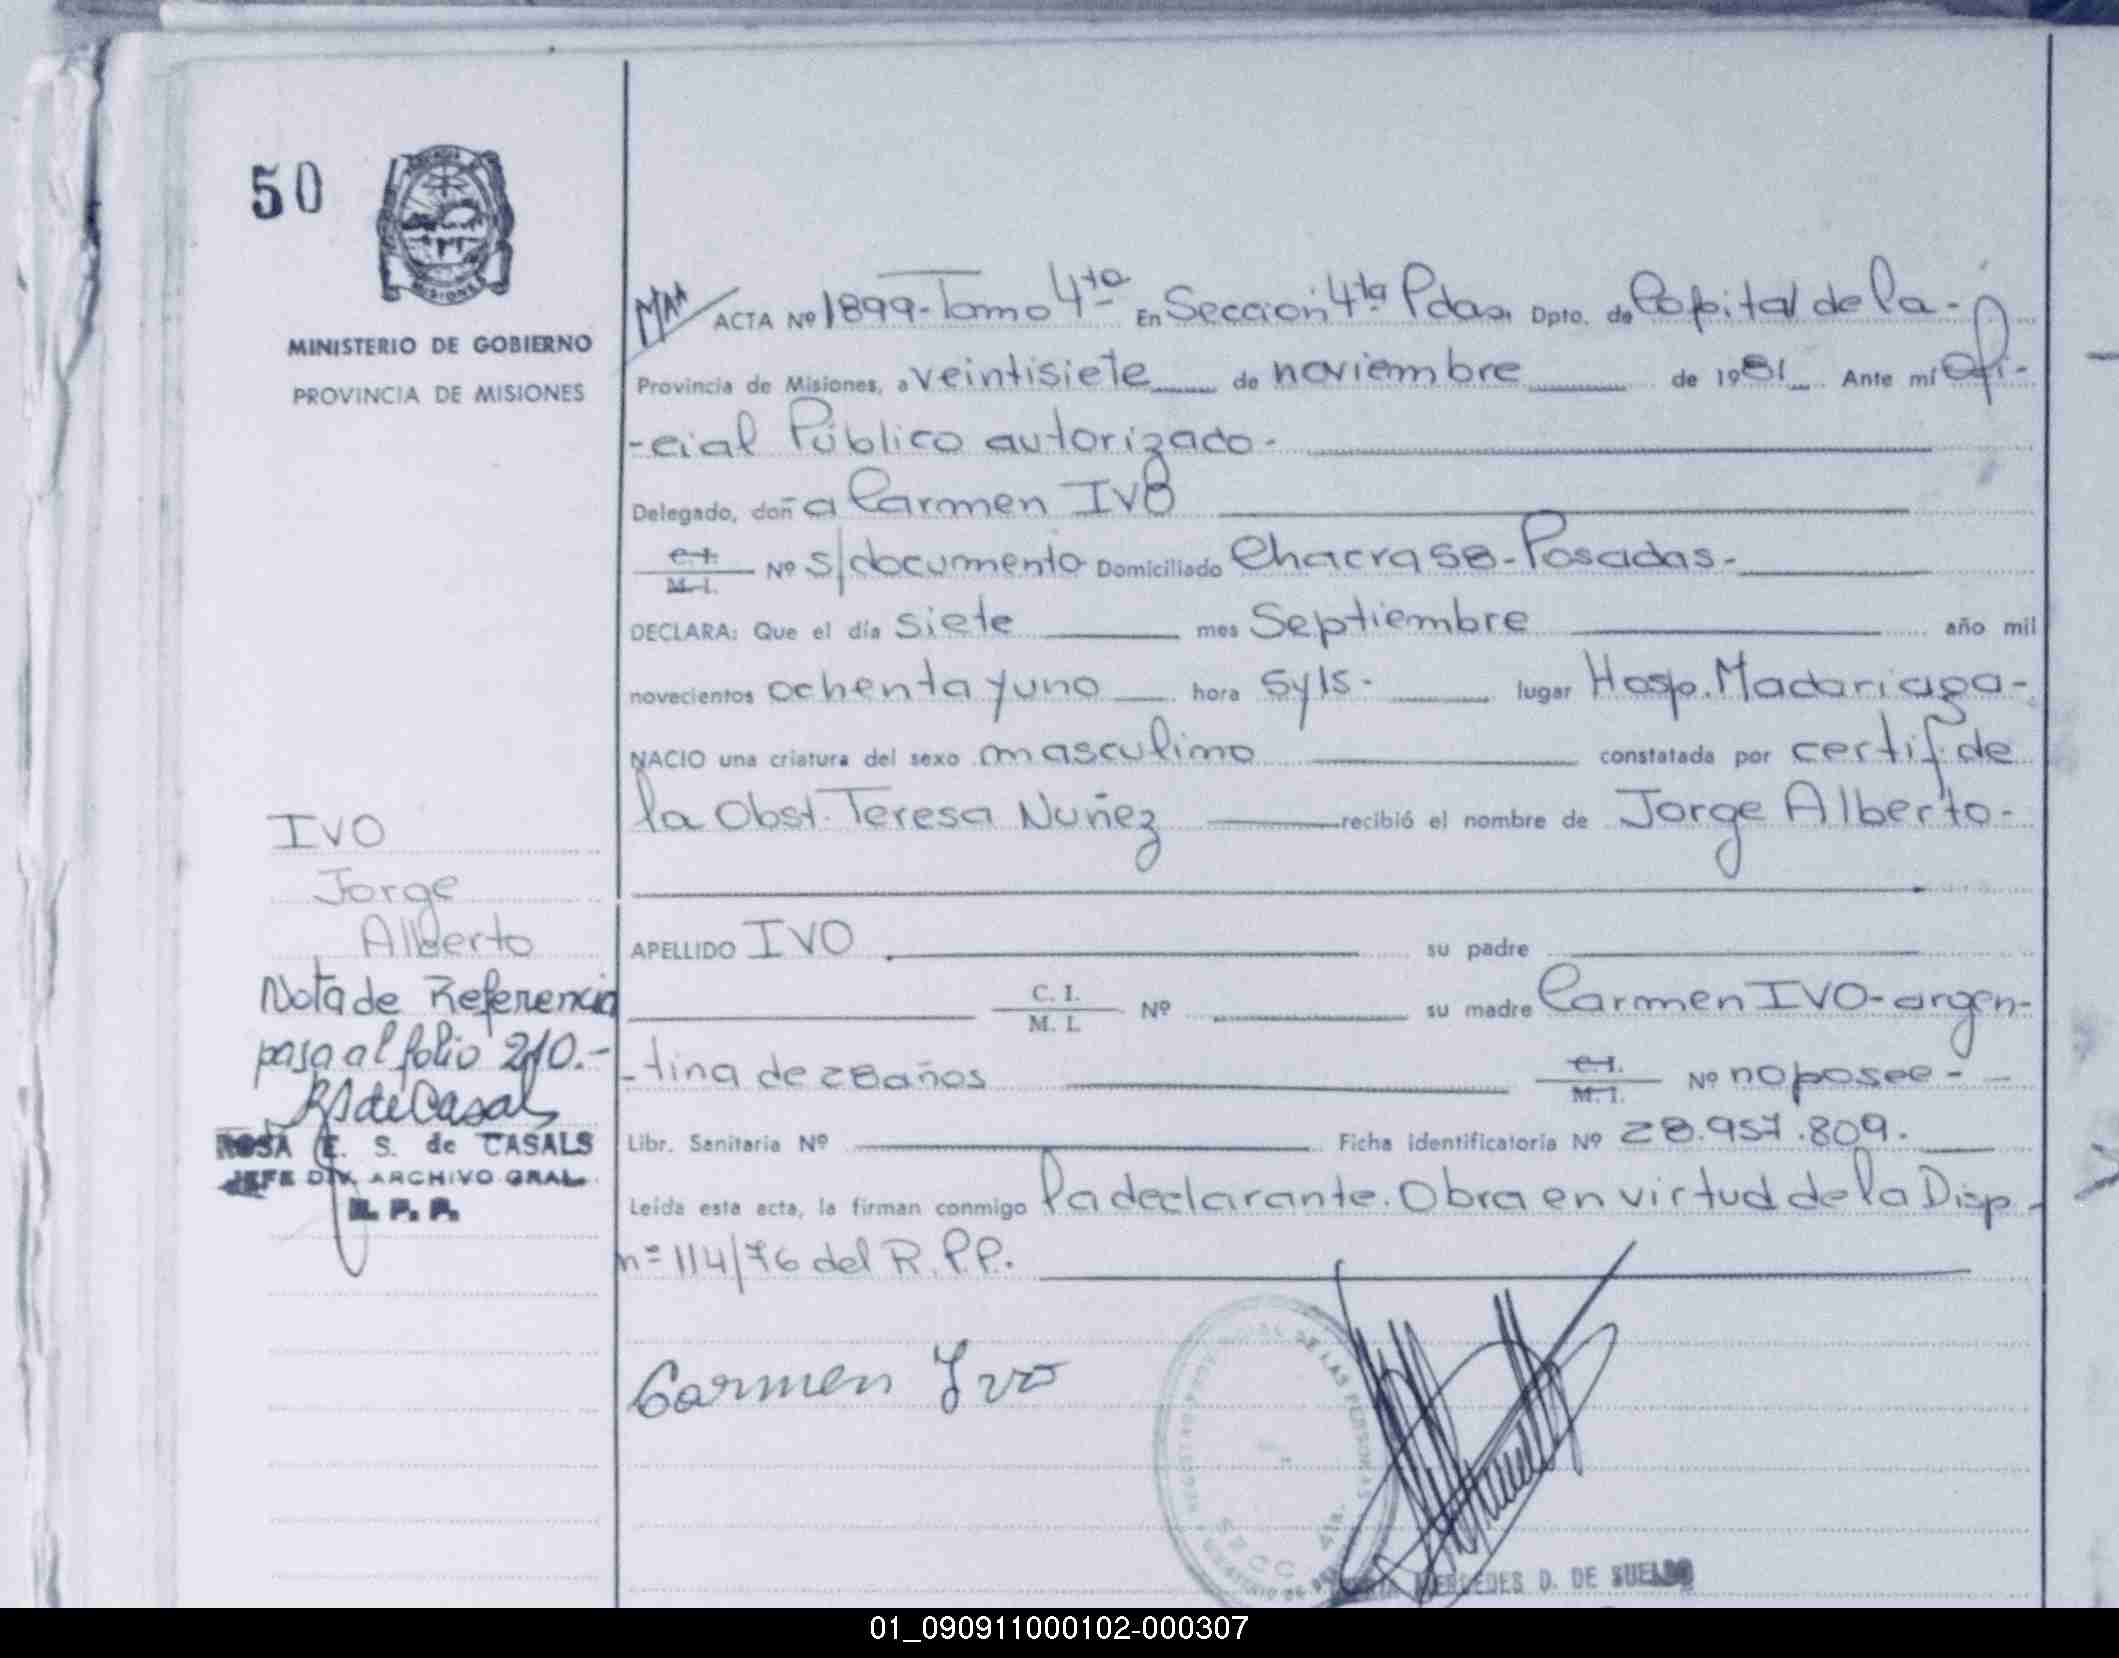 50
MINISTERIO DE GOBIERNO
PROVINCIA DE MISIONES
ACTA Nº 1899-Tomo 4ta En Sección 4ta Pdas. Dpto. de Capital de la-
Provincia de Misiones, a veintisiete de noviembre de 1981 Ante mí Ofi-
-cial Público autorizado-
Delegado, doña Carmen IVO
C.I. M.I. Nº s/documento Domiciliado Chacra 58-Posadas-
DECLARA: Que el día siete mes Septiembre año mil
novecientos ochenta y uno hora 5y15- lugar Hosp. Madariaga-
NACIO una criatura del sexo masculino constatada por certif. de
la Obst. Teresa Nuñez recibió el nombre de Jorge Alberto-
APELLIDO IVO su padre
C. I. M. I. Nº su madre Carmen IVO-argen-
-tina de 28 años C.I. M.I. Nº no posee-
Libr. Sanitaria Nº Ficha identificatoria Nº 28.957.809.
Leída esta acta, la firman conmigo la declarante. Obra en virtud de la Disp-
nº 114/76 del R.P.P.
IVO
Jorge
Alberto
Nota de Referencia
pasa al folio 210.-
RSdeCasals
ROSA E. S. de CASALS
JEFE DIV. ARCHIVO GRAL.
R. P. P.
Carmen Ivo
DE LAS PERSONAS
SECC. 4ta.
MERCEDES D. DE SUELDO
01_090911000102-000307